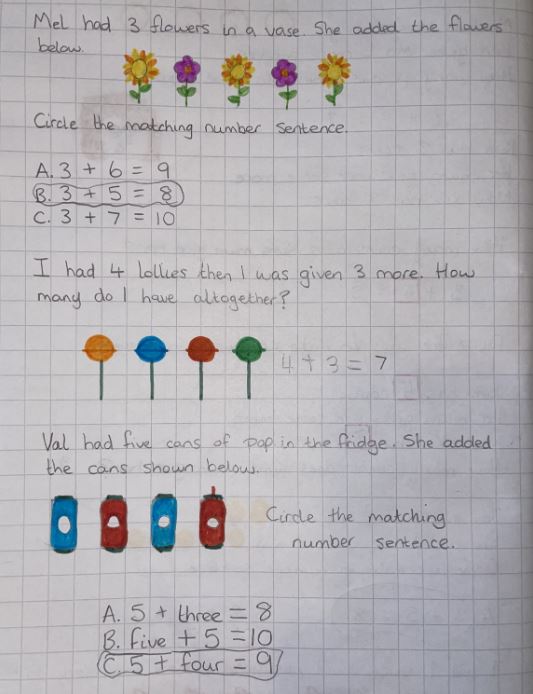 Mel had 3 flowers in a vase. She added the flowers
below.
Circle the matching number sentence.
A. 3 + 6 = 9
B. 3 + 5 = 8
C. 3 + 7 = 10
I had 4 lollies then I was given 3 more. How
many do I have altogether?
4 + 3 = 7
Val had five cans of pop in the fridge. She added
the cans shown below.
Circle the matching
number sentence.
A. 5 + three = 8
B. five + 5 = 10
C. 5 + four = 9